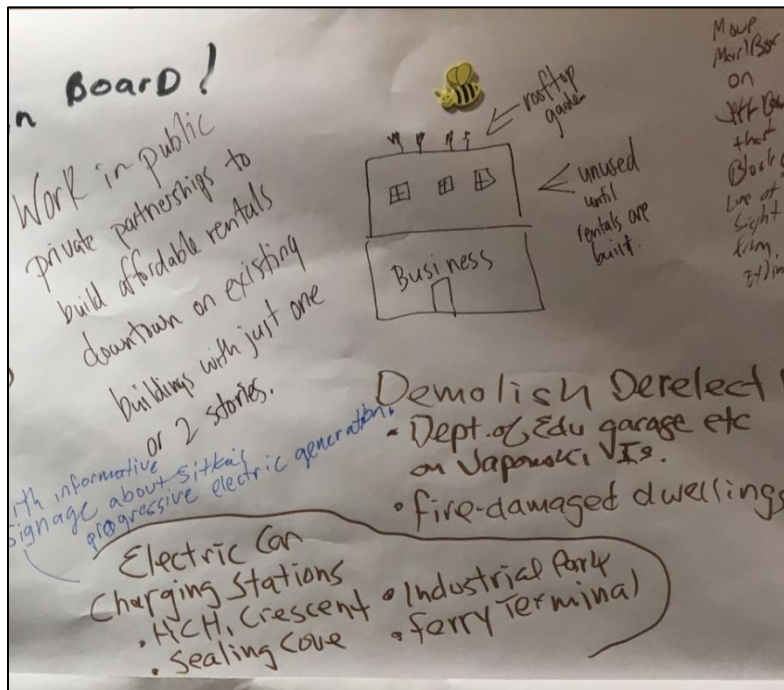 n BoarD!
Work in public
private partnerships to
build affordable rentals
downtown on existing
buildings with just one
or 2 stories.
rooftop
garden
unused
until
rentals are
built.
Business
Move
MailBox
on
that
Blocks
Line of
Sight
Demolish Derelect
• Dept. of Edu garage etc
on Japonski Is.
• fire-damaged dwellings
ith informative
signage about Sitka's
progressive electric generation.
Electric Car
Charging Stations
• HCH, Crescent
• Sealing Cove
• Industrial Park
• Ferry Terminal